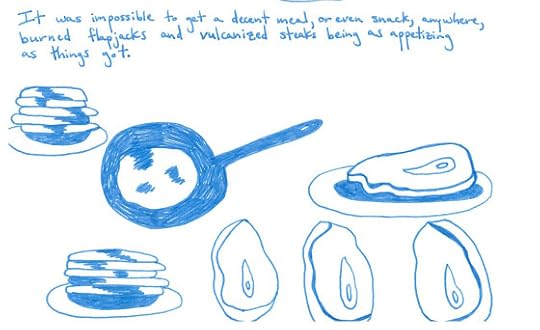 It was impossible to get a decent meal, or even snack, anywhere,
burned flapjacks and vulcanized steaks being as appetizing
as things got.